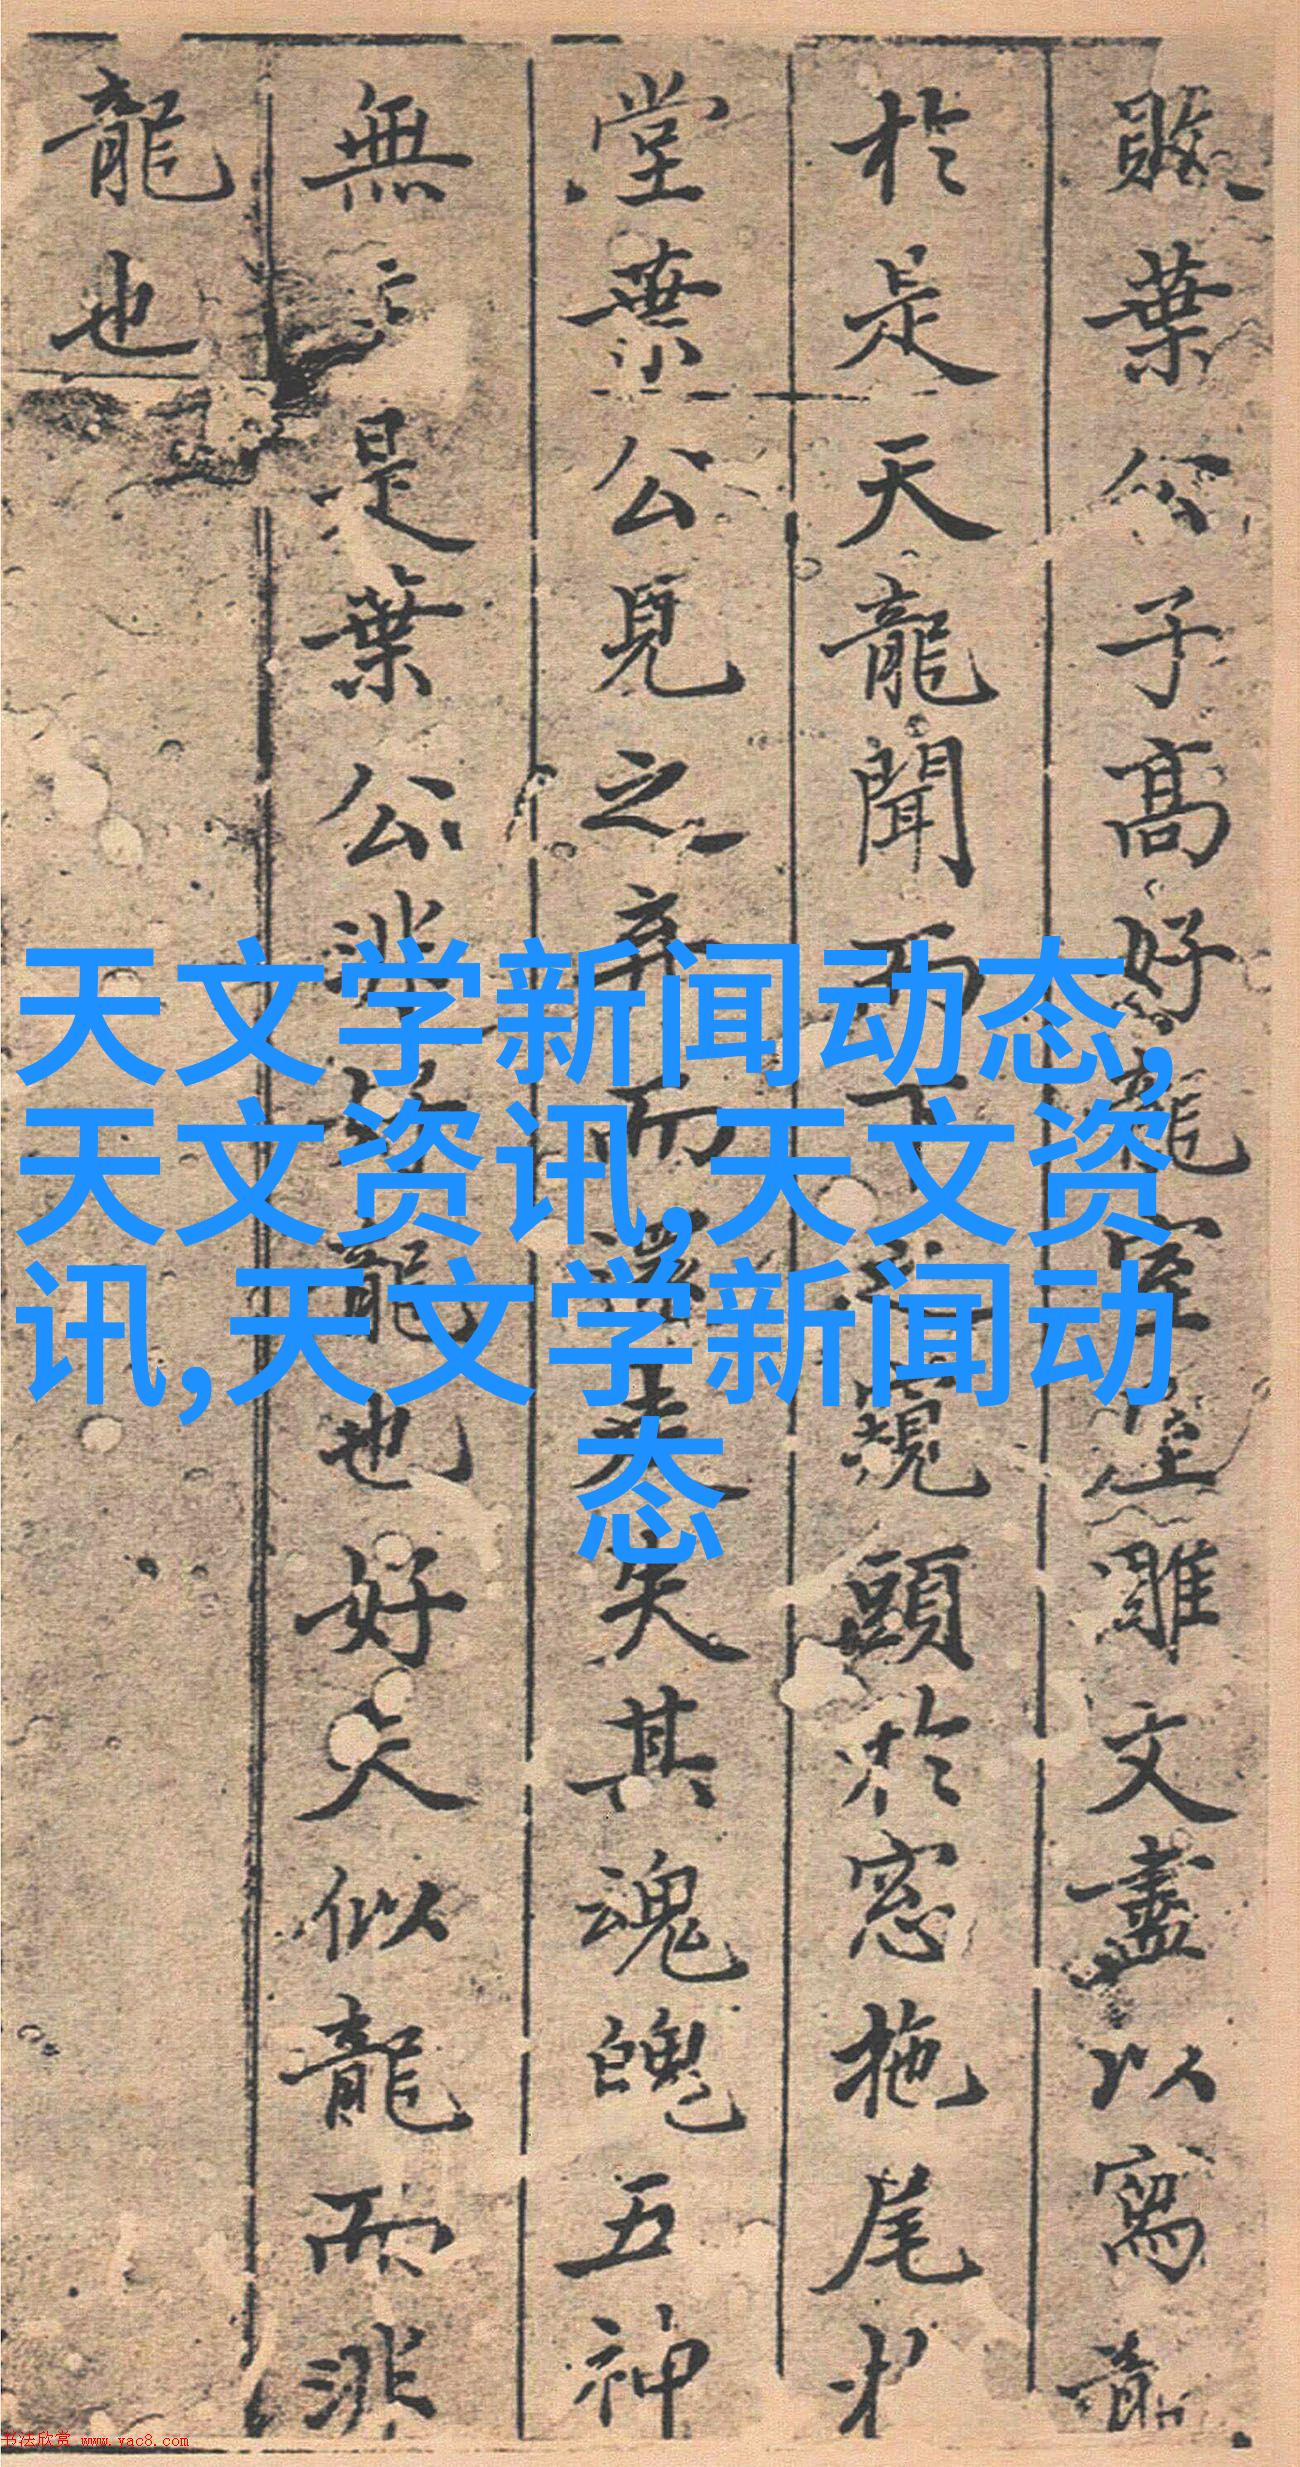 敗葉公子高好龍室屋雕文盡以寫龍
於是天龍聞而下之窺頭於窓拖尾於
堂葉公見之弃而還走失其魂魄五神
無主是葉公非好龍也好夫似龍而非
龍也
天文学新闻动态,
天文资讯,天文资
讯,天文学新闻动
态
书法欣赏 www.yac8.com